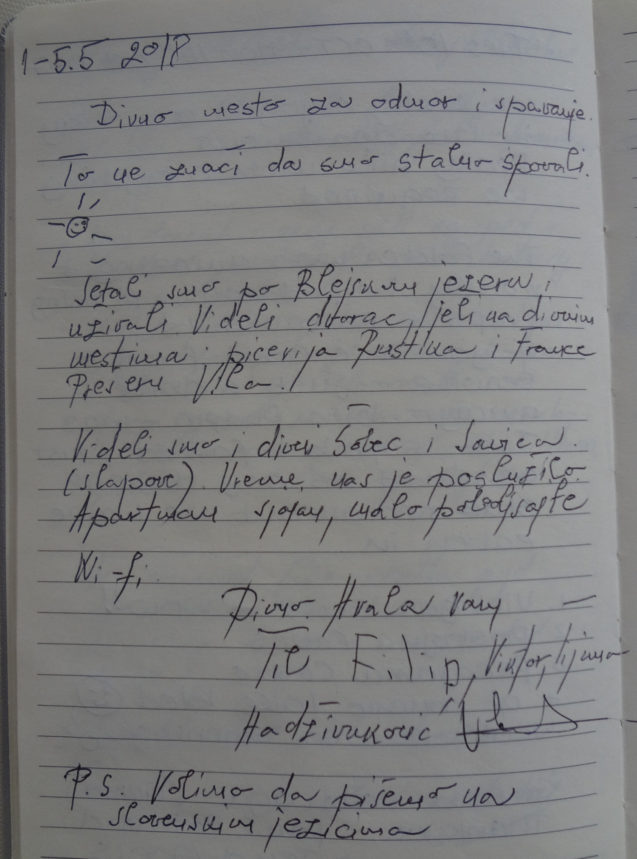 1-5.5 2018
Divno mesto za odmor i spavanje.
To ne znači da smo stalno spavali.
Šetali smo po Blejskom jezeru,
uživali. Videli dvorac, jeli na divnim
mestima: picerija Rustika i France
Prešern Vila.
Videli smo i divni Šobec i Savica
(slapove). Vreme nas je poslužilo.
Apartman sjajan, malo poboljšajte
Wi-fi.
Divno. Hvala vam
Filip, Viktor,
Hadživuković
P.S. Volimo da pišemo na
slovenskim jezicima